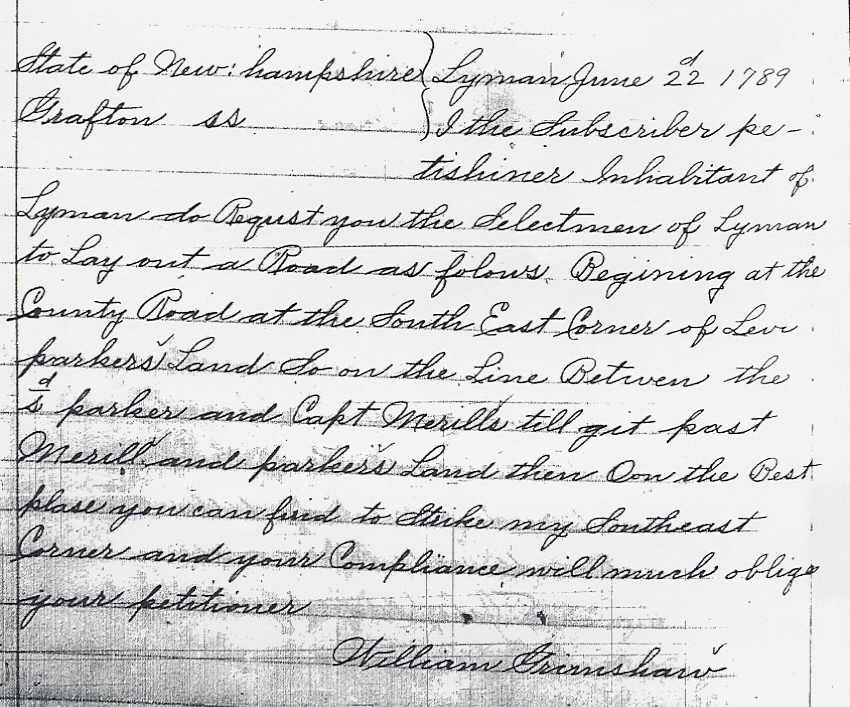 State of New: hampshire } Lyman June 22d 1789
Grafton ss } I the Subscriber pe-
tishiner Inhabitant of
Lyman do Requst you the Selectmen of Lyman
to Lay out a Road as folows. Begining at the
County Road at the South East Corner of Levi
parkers Land So on the Line Betwen the
sd parker and Capt Merills till git past
Merill and parkers Land then Oon the Best
plase you can find to Strike my Southeast
Corner and your Compliance will much oblige
your petitioner
William Grimshaw